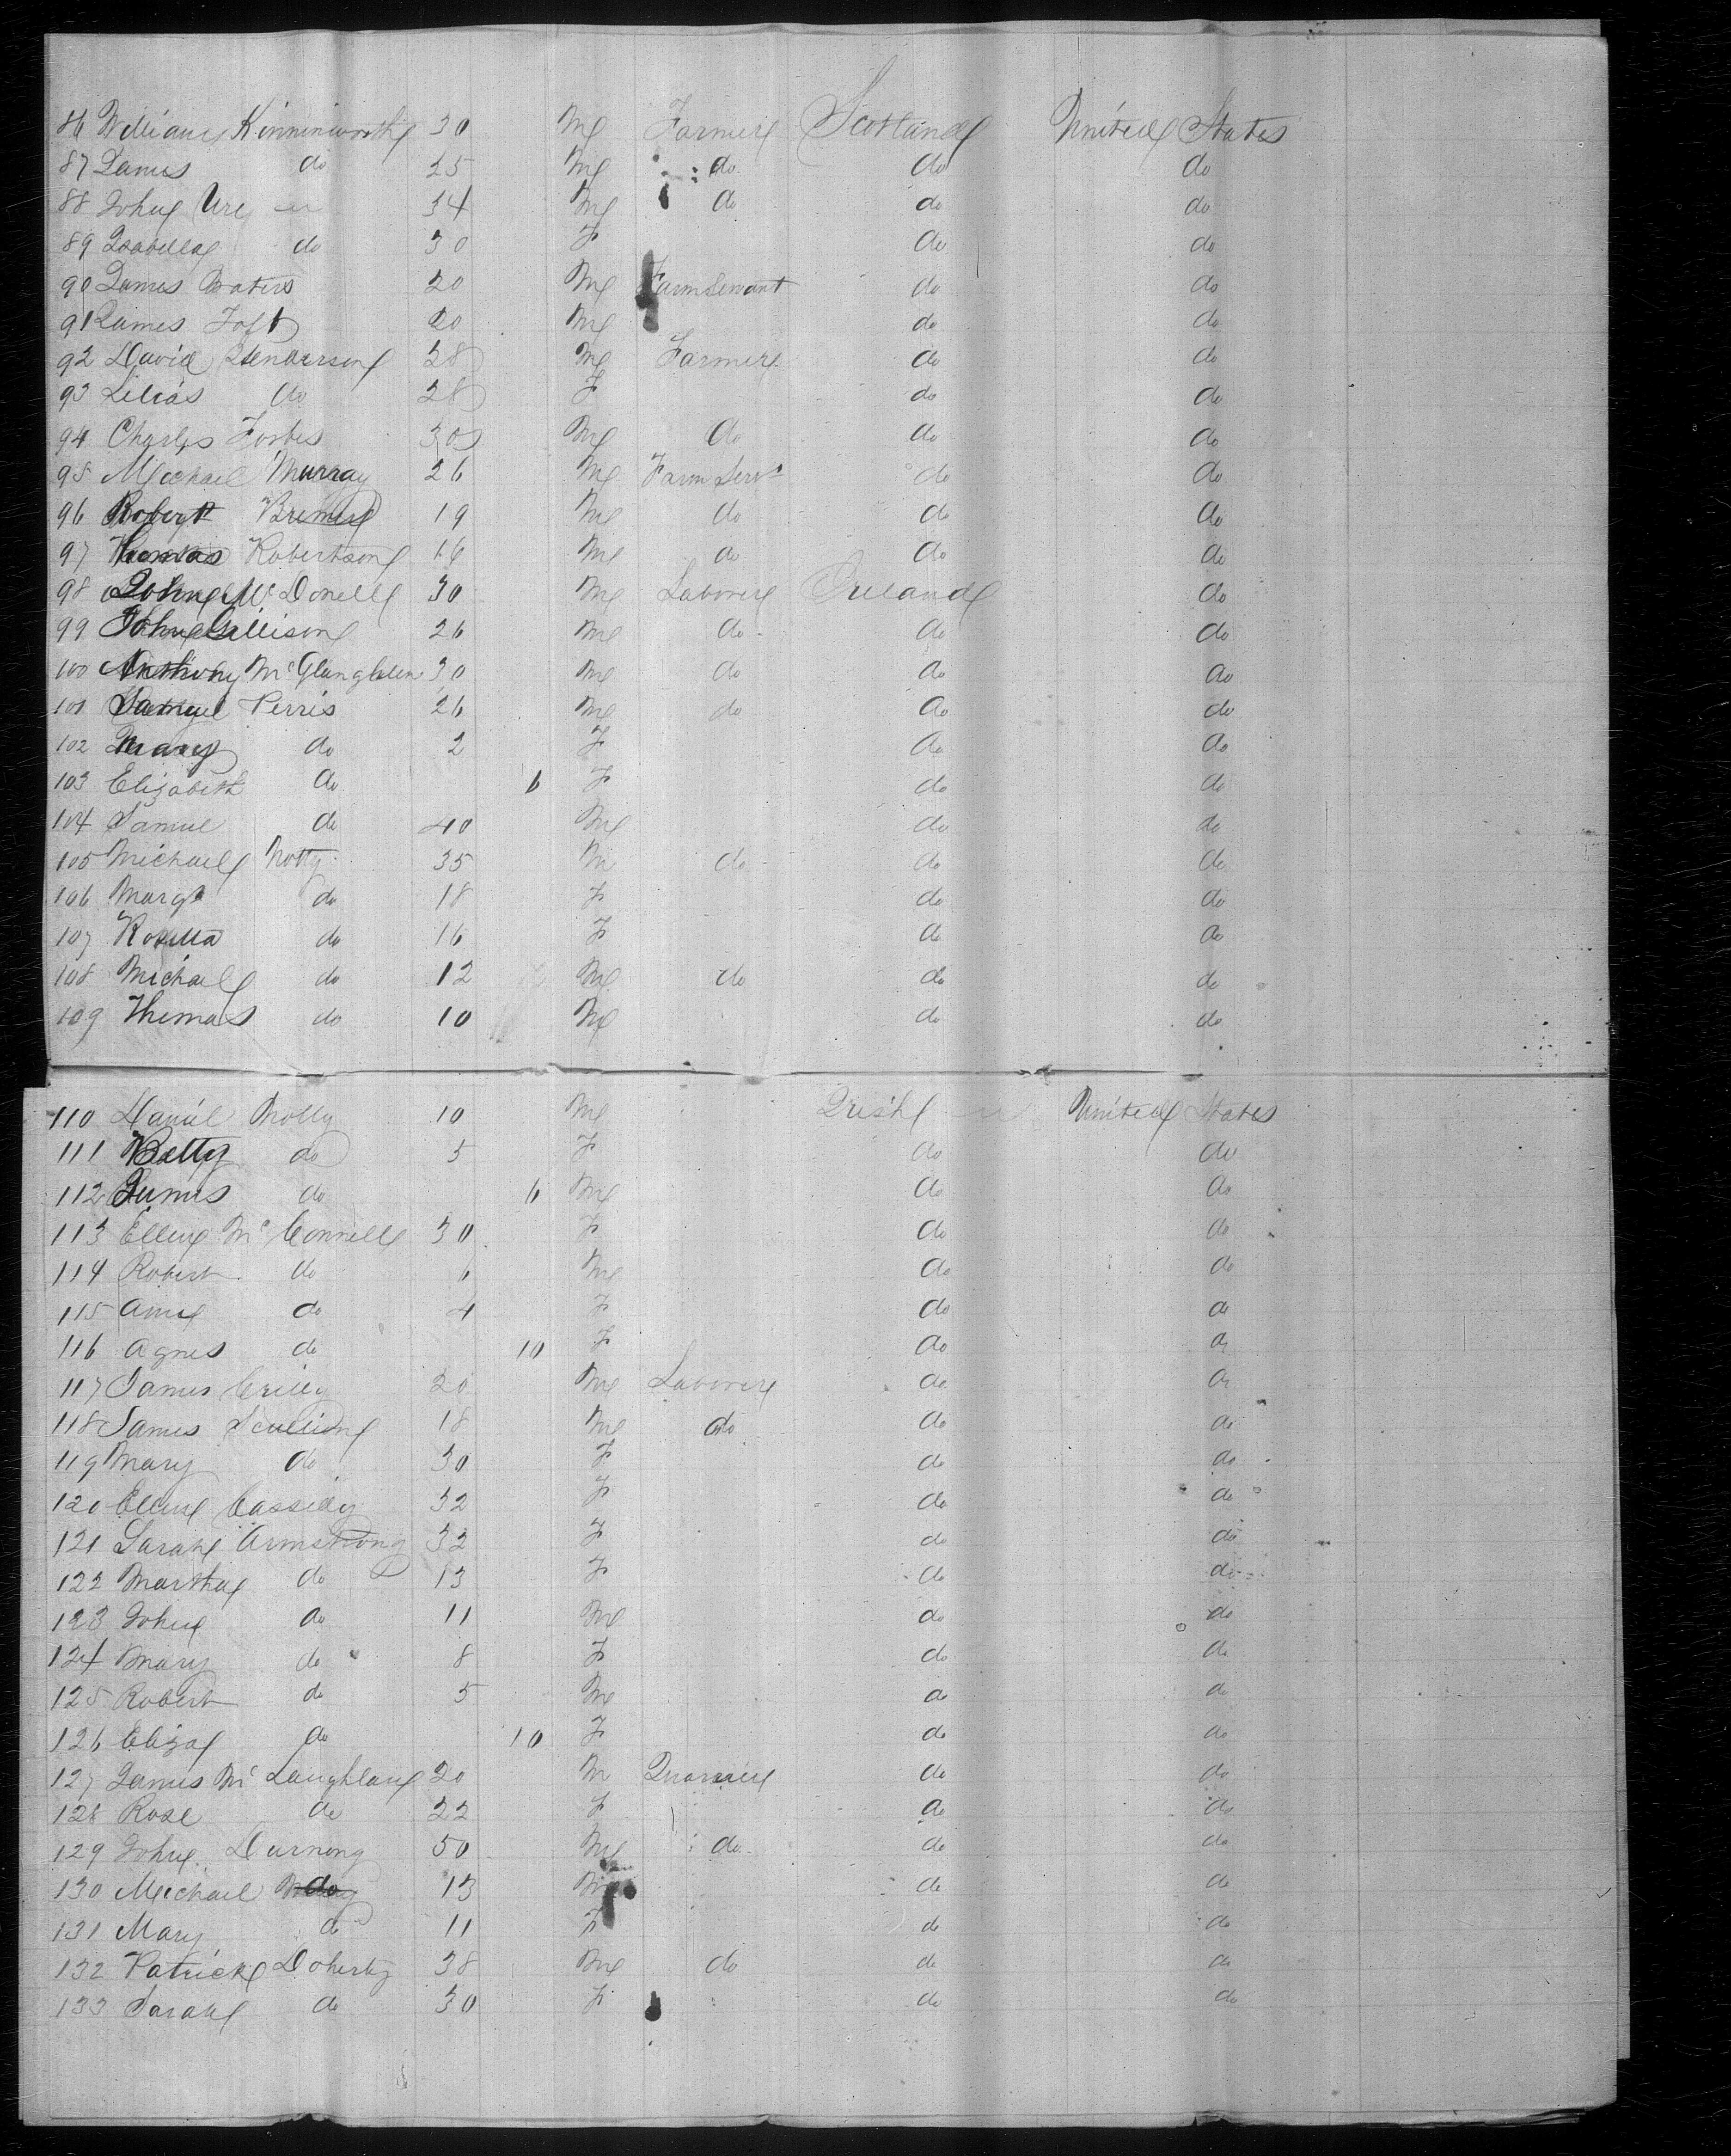 86 William Kinninworth 30 M Farmer Scotland United States
87 James do 25 M do do do
88 John Ure 34 M do do do
89 Isabella do 30 F do do
90 James Waters 20 M Farm Servant do do
91 James Toft 20 M do do
92 David Henderson 28 M Farmer do do
93 Lilias do 28 F do do
94 Charles Forbes 30 M do do do
95 Michael Murray 26 M Farm Servt do do
96 Robert Bremer 19 M do do do
97 Thomas Robertson 16 M do do do
98 John McDonell 30 M Laborer Ireland do
99 John Gillison 26 M do do do
100 Anthony McGlaughlen 30 M do do do
101 Samuel Perris 26 M do do do
102 Mary do 2 F do do
103 Elizabeth do 6 F do do
104 Samuel do 40 M do do
105 Michael 35 M do do do
106 Margt do 18 F do do
107 Rosetta do 16 F do do
108 Michael do 12 M do do do
109 Thomas do 10 M do do
110 Daniel 10 M Irish United States
111 Betty do 5 F do do
112 James do 6 M do do
113 Ellen McConnell 30 F do do
114 Robert do 6 M do do
115 Ann do 4 F do do
116 Agnes do 10 F do do
117 James Crilly 20 M Laborer do do
118 James Scullion 18 M do do do
119 Mary do 30 F do do
120 Ellen Cassidy 32 F do do
121 Sarah Armstrong 32 F do do
122 Martha do 13 F do do
123 John do 11 M do do
124 Mary do 8 F do do
125 Robert do 5 M do do
126 Eliza do 10 F do do
127 James McLaughlan 20 M do do
128 Rose do 22 F do do
129 John Durnong 50 M do do do
130 Michael do 13 M do do
131 Mary do 11 F do do
132 Patrick Doherty 38 M do do do
133 Sarah do 30 F do do